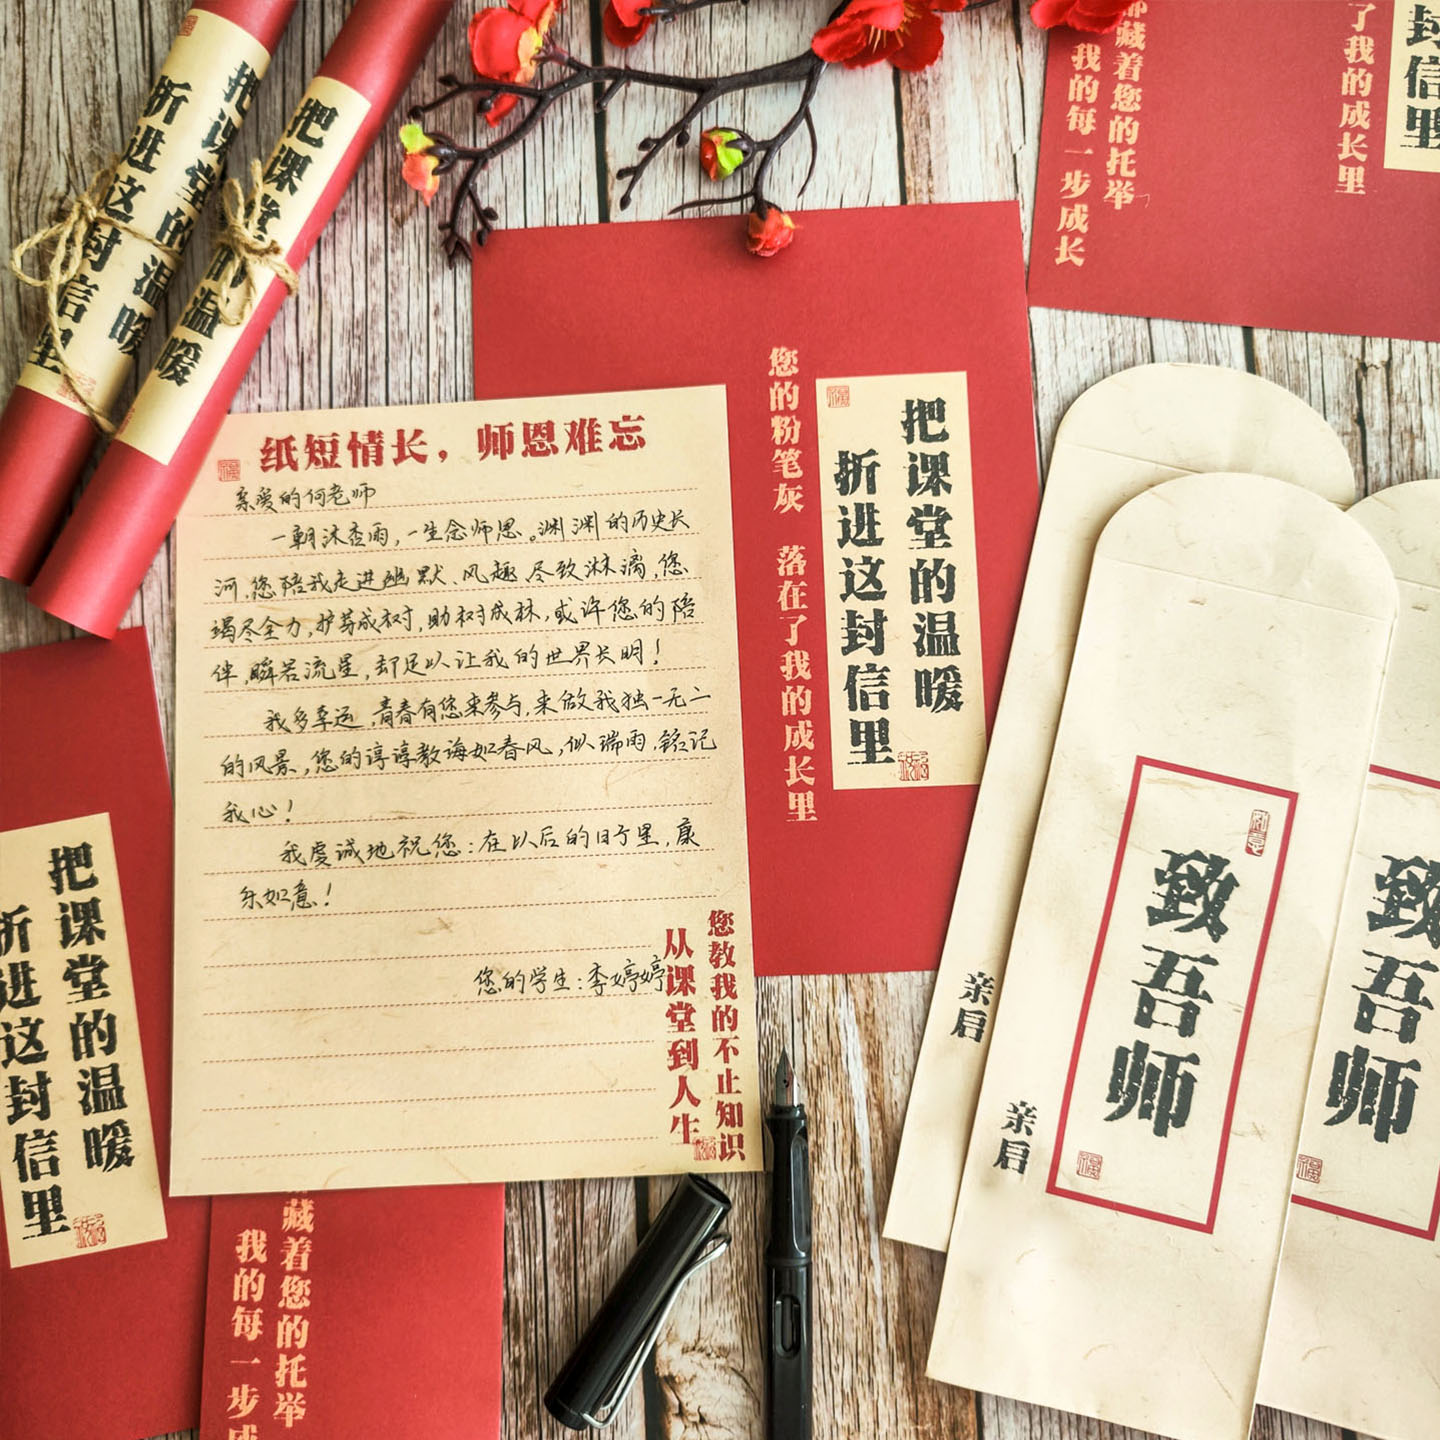 把课堂的温暖
折进这封信里
把课堂的温暖
藏着您的托举
我的每一步成长
了我的成长里
封信里
您的粉笔灰 落在了我的成长里
把课堂的温暖
折进这封信里
纸短情长，师恩难忘
亲爱的何老师
一朝沐杏雨，一生念师恩。渊渊的历史长
河，您陪我走进幽默、风趣、尽致淋漓，您
竭尽全力，护苗成树，助树成林，或许您的陪
伴，瞬若流星，却足以让我的世界长明！
我多幸运，青春有您来参与，来做我独一无二
的风景，您的谆谆教诲如春风，似瑞雨，铭记
我心！
我虔诚地祝您：在以后的日子里，康
乐如意！
您的学生：李婷婷
您教我的不止知识
从课堂到人生
把课堂的温暖
折进这封信里
藏着您的托举
我的每一步成
致吾师
亲启
致吾师
亲启